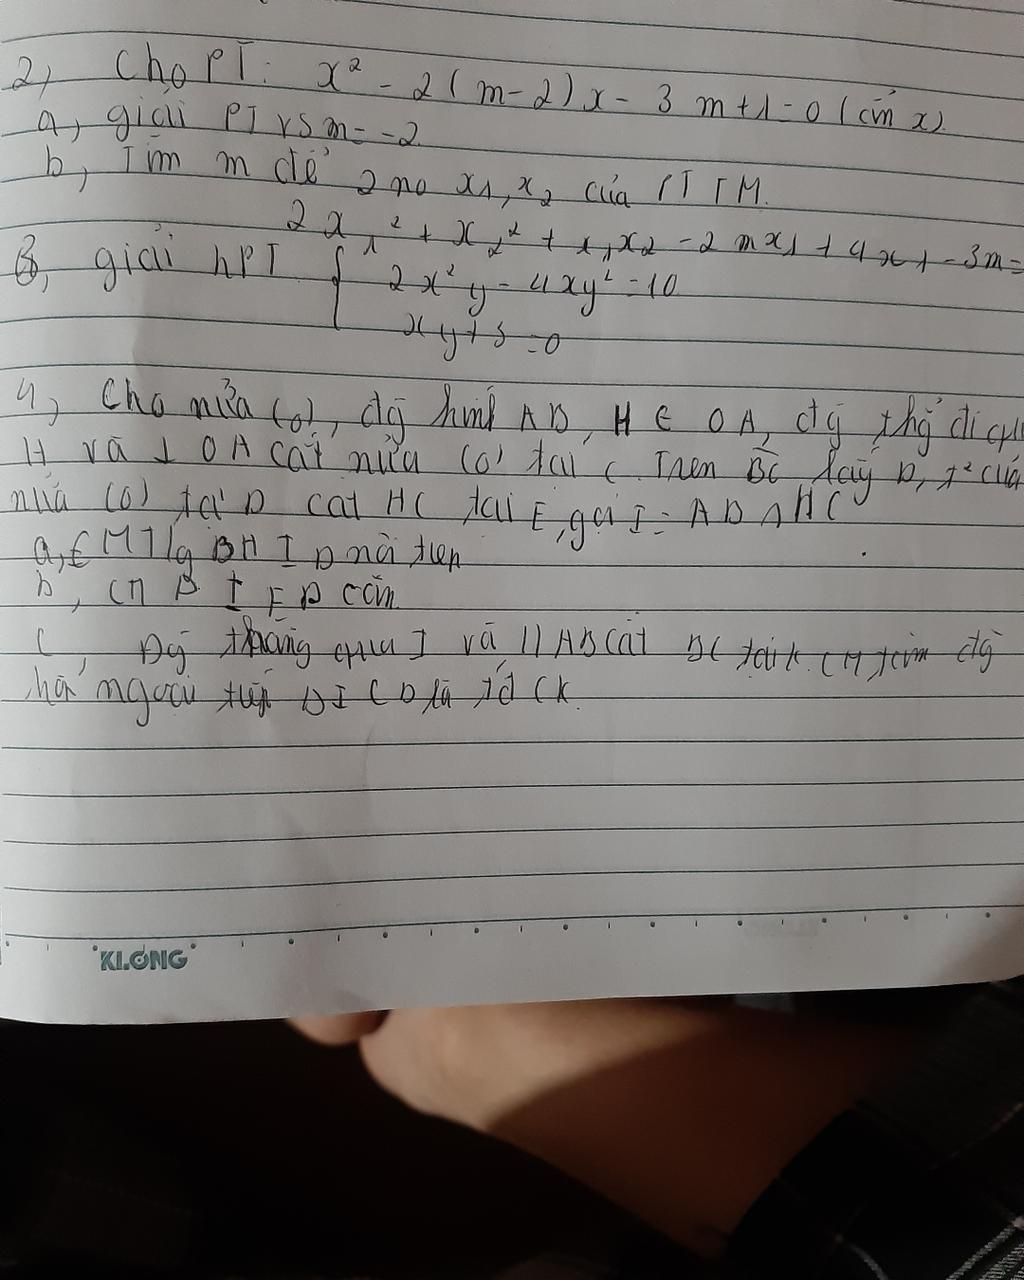 2, Cho PT: x² - 2(m-2)x - 3m+1=0 (ẩn x)
a, giải PT vs m=-2.
b, Tìm m để 2 no x₁, x₂ của PT TM.
2x₁² + x₂² + x₁x₂ - 2mx₁ + 4x₁ - 3m=
3, giải hPT { 2x²y - 4xy² = 10
xy+5=0
4, Cho nửa (O), đg kính AB, H ∈ OA, đg thg đi qua
H và ⊥ OA cắt nửa (O) tại C. Trên BC lấy D, t² của
nửa (O) tại D cắt HC tại E, gọi I = AD ∩ HC
a, CM T/g BHID nội tiếp
b, CM Δ IED cân
c, Đg thẳng qua I và // AB cắt BC tại K. CM, tâm đg
ngoại tiếp ΔICD là tđ CK.
KLONG